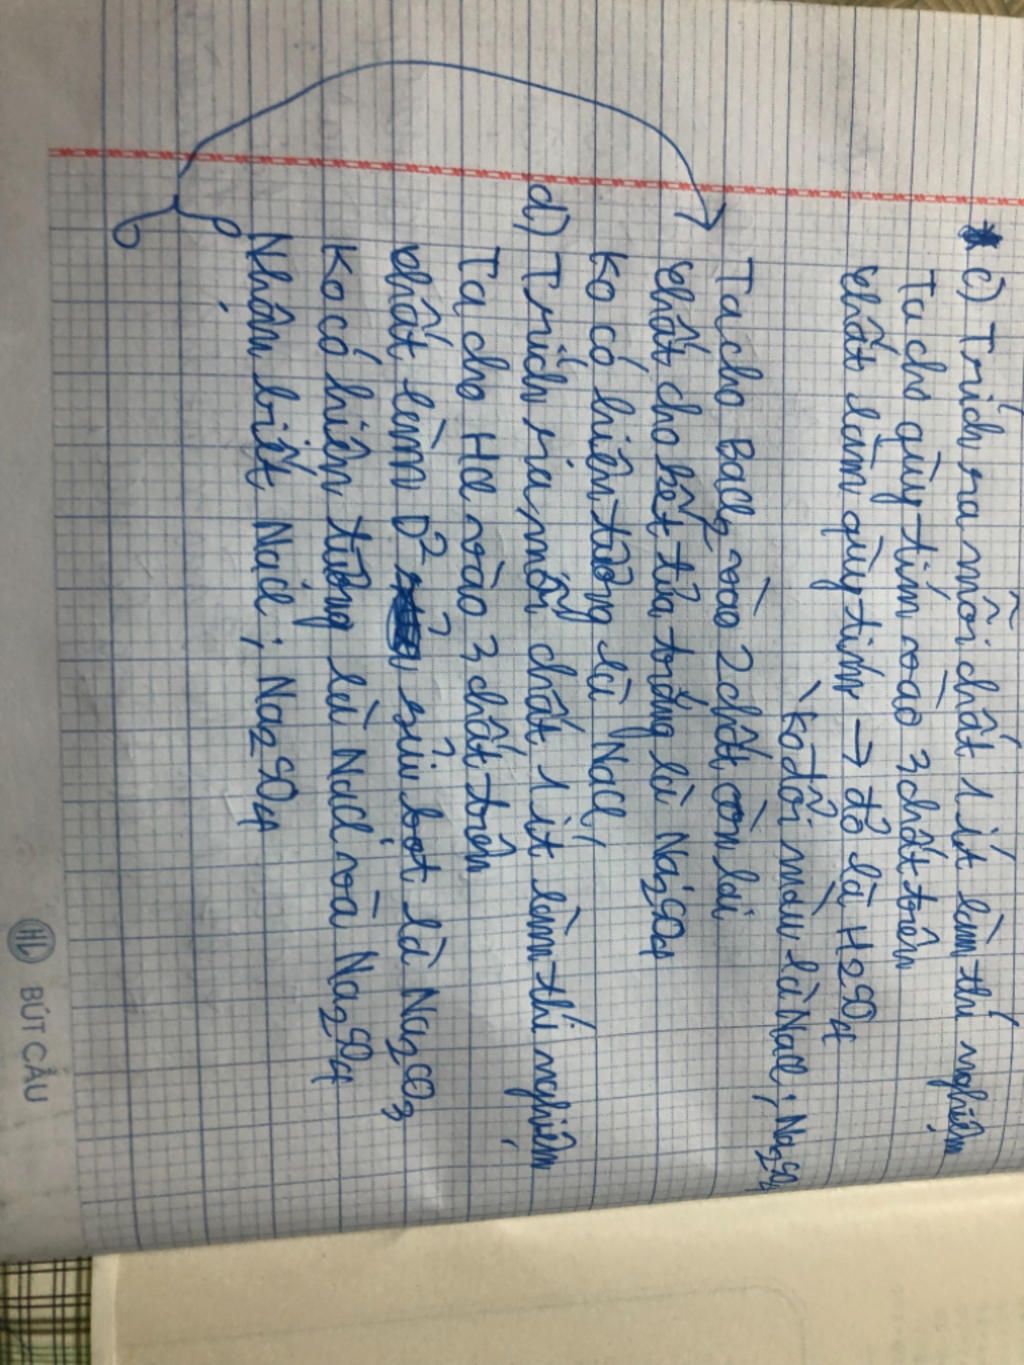 c) Trích ra mỗi chất 1 ít làm thí nghiệm
Ta cho qùy tím vào 3 chất trên
chất làm qùy tím → đỏ là H2SO4
↘ ko đổi màu là NaCl ; Na2SO4
Ta cho BaCl2 vào 2 chất còn lại
chất cho kết tủa trắng là Na2SO4
Ko có hiện tượng là NaCl
d) Trích ra mỗi chất 1 ít làm thí nghiệm
Ta cho HCl vào 3 chất trên
chất làm D² sủi bọt là Na2CO3
Ko có hiện tượng là NaCl vào Na2SO4
Nhâm biết NaCl ; Na2SO4
HL BÚT CẦU